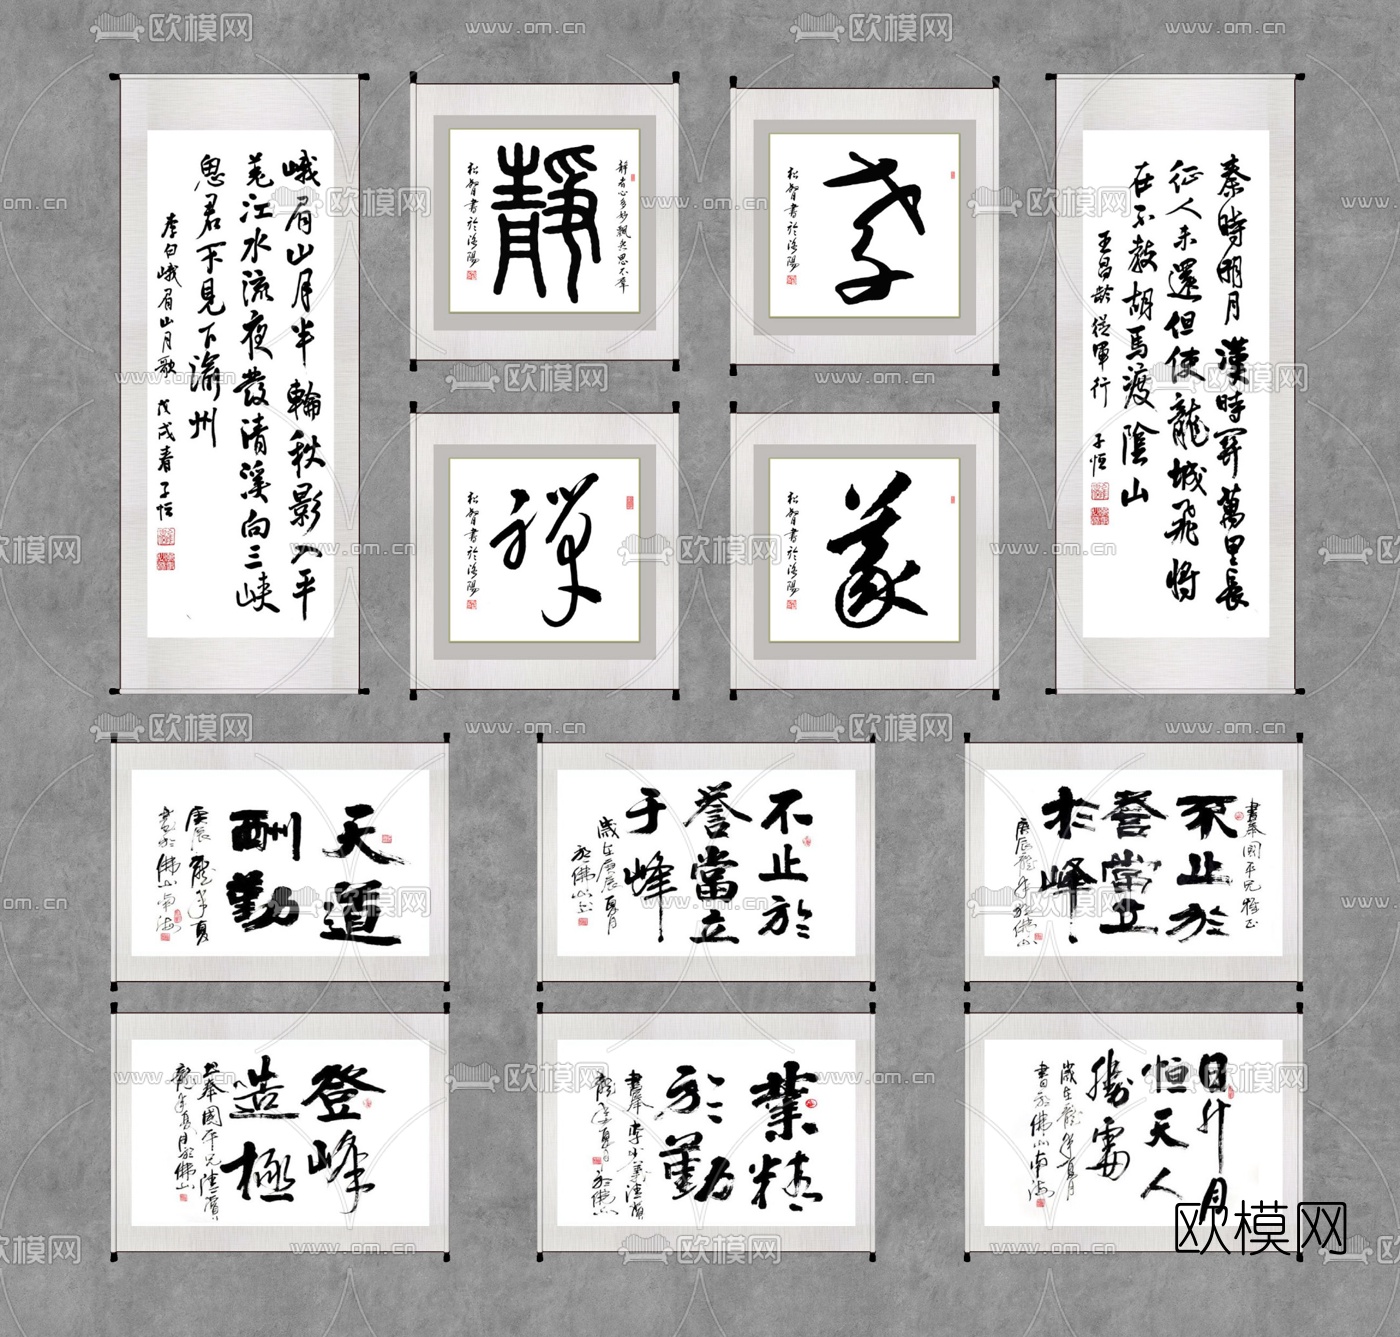 峨眉山月半輪秋影入平
羌江水流夜發清溪向三峽
思君不見下渝州
李白峨眉山月歌 戊戌春子恒
靜者心多妙飄然思不羣
靜
松智書於洛陽
孝
松智書於洛陽
秦時明月漢時關萬里長
征人未還但使龍城飛將
在不教胡馬渡陰山
王昌齡從軍行 子恒
禪
松智書於洛陽
義
松智書於洛陽
天道
酬勤
庚辰龍年夏
不止於
譽當立
于峰
歲在庚辰夏月
於佛山
書奉國平兄雅正
不止於
譽當立
於峰
庚辰龍年於佛山
登峰
造極
書奉國平兄清賞
龍年夏月於佛山
業精
於勤
龍年夏月於佛山
日升月
恒天人
勝處
歲在龍年夏月
書於佛山南海
欧模网
www.om.cn